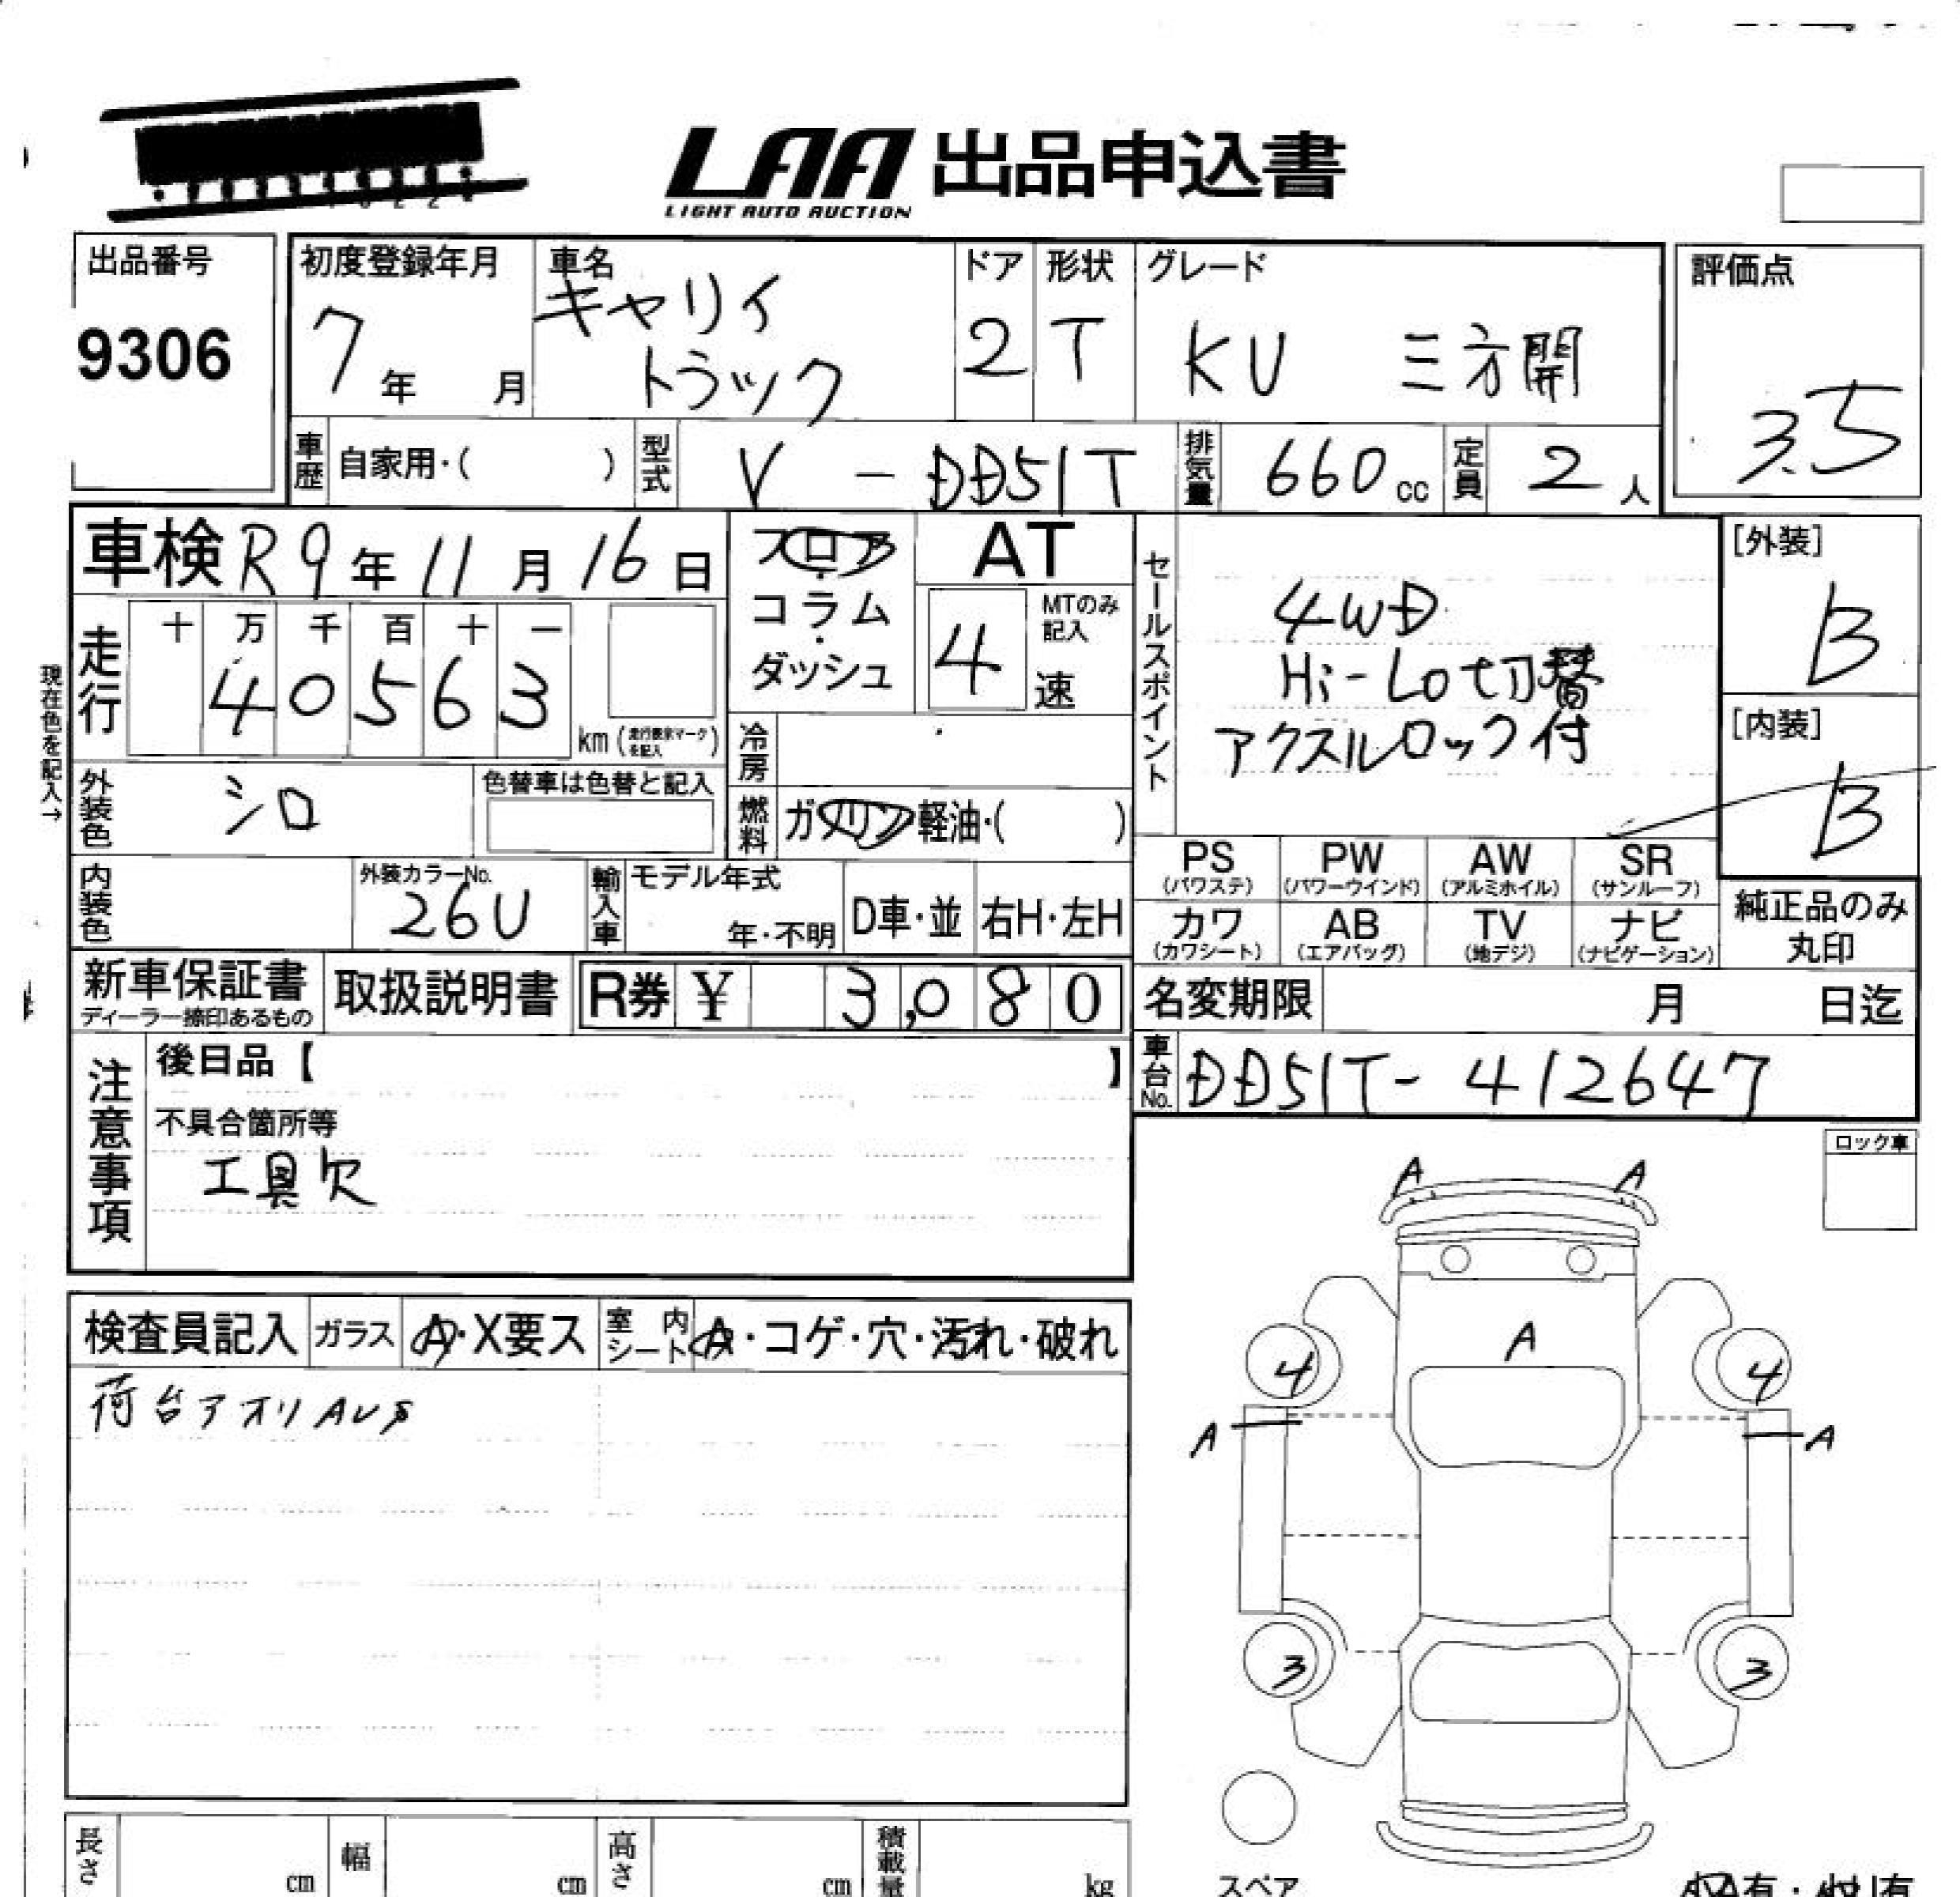 LAA 出品申込書
LIGHT AUTO AUCTION
出品番号
9306
初度登録年月
7年 月
車名
キャリイ
トラック
ドア
2
形状
T
グレード
KU 三方開
評価点
3.5
車歴 自家用・( )
型式 V - DD51T
排気量 660 cc
定員 2 人
車検 R9年11月16日
走行
十 万 千 百 十 一
4 0 5 6 3
km (走行表示マークを記入)
現在色を記入→
フロア
・
コラム
・
ダッシュ
AT
4
MTのみ
記入
速
冷房
燃料 ガソリン・軽油・( )
セールスポイント
4WD
Hi-Lo切替
アクスルロック付
[外装]
B
[内装]
B
外装色 シロ
色替車は色替と記入
内装色
外装カラーNo.
26U
輸入車
モデル年式
年・不明
D車・並
右H・左H
PS
(パワステ)
PW
(パワーウインド)
AW
(アルミホイル)
SR
(サンルーフ)
カワ
(カワシート)
AB
(エアバッグ)
TV
(地デジ)
ナビ
(ナビゲーション)
純正品のみ
丸印
新車保証書
ディーラー捺印あるもの
取扱説明書
R券 ¥ 3,080
名変期限 月 日迄
車台No. DD51T-412647
注意事項
後日品【 】
不具合箇所等
工具欠
ロック車
検査員記入
ガラス
A・X要ス
室内
シート
A・コゲ・穴・汚れ・破れ
荷台アオリAUS
A A
A
4 4
A A
3 3
スペア
長さ cm
幅 cm
高さ cm
積載量 kg